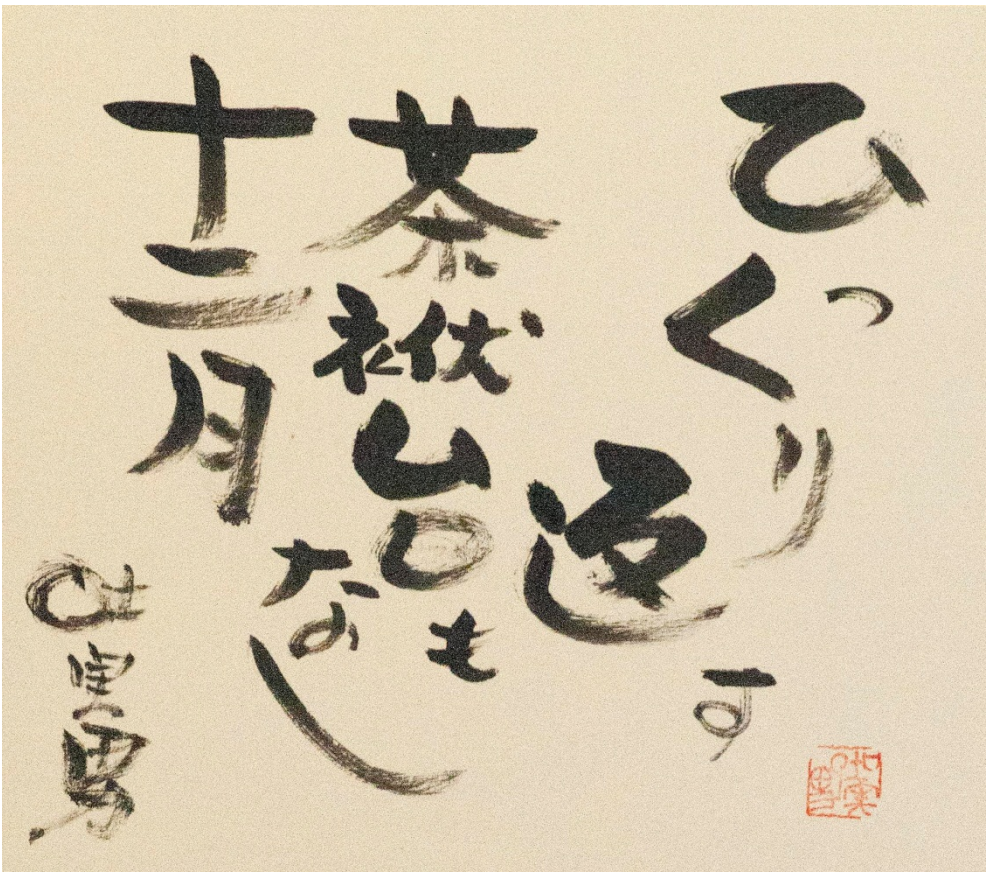 ひっくり返す
茶袱台もなし
十二月